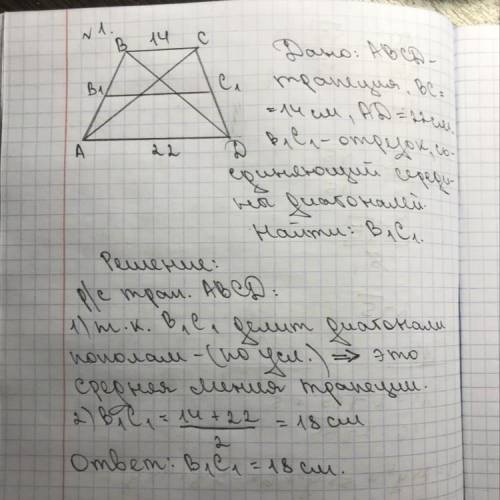 №1.
B 14 C
B₁ C₁
A 22 D
Дано: ABCD-
трапеция, BC=
=14см, AD=22см.
B₁C₁-отрезок, со-
единяющий середи-
ны диагоналей.
Найти: B₁C₁.
Решение:
р/с трап. ABCD:
1) т.к. B₁C₁ делит диагонали
пополам-(по усл.) ⇒ это
средняя линия трапеции.
2) B₁C₁ = 14+22/2 = 18 см
Ответ: B₁C₁ = 18 см.